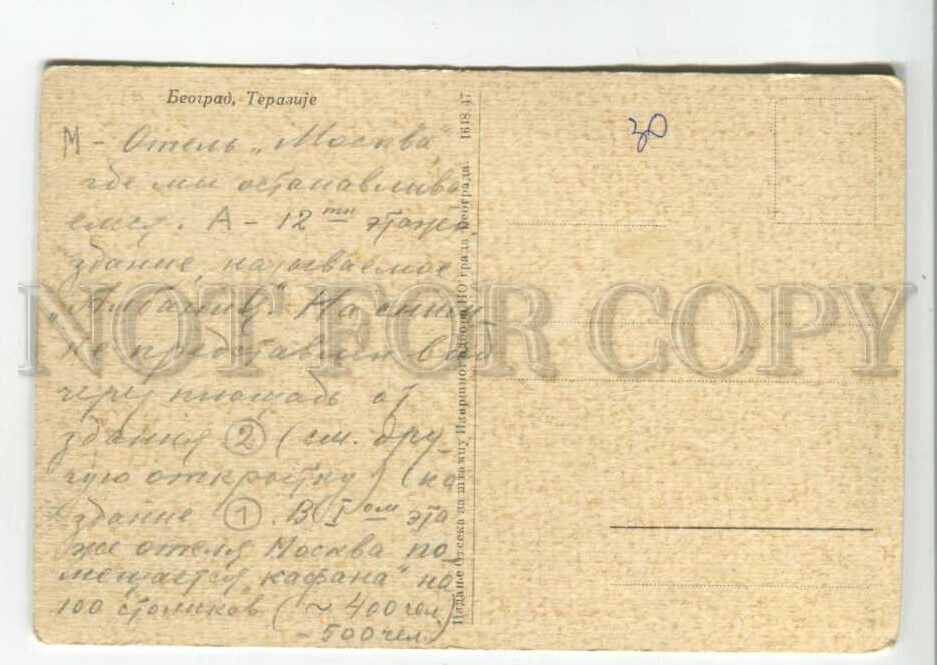 Београд, Теразије
М - Отель „Москва"
где мы останавлива
емся. А - 12ти этажн
здание, называемое
„Албания" На сним
ке представлен вид
через площадь от
здания ② (см. дру
гую открытку) (на
здание ①. В Iом эта
же отеля Москва по
мещается „кафана" на
100 столиков (~ 400 чел.
- 500 чел.)
Издање Отсека за штампу Извршног одбора НО града Београда 1648 47
30
NOT FOR COPY